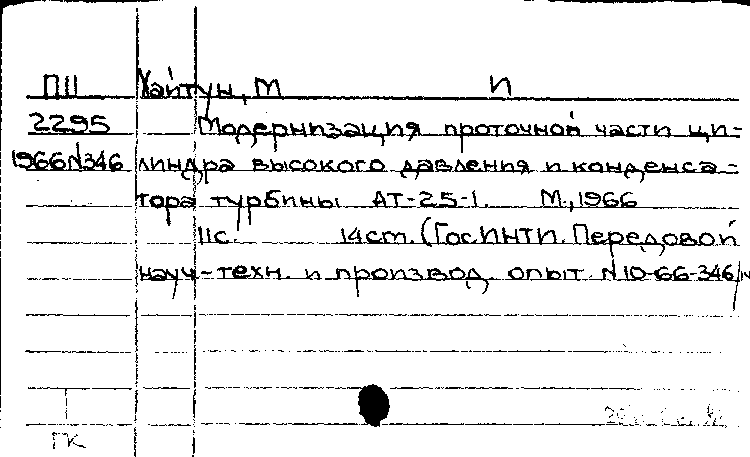 ПII Хайтун, М И
2295 Модернизация проточной части ци-
1966N346 линдра высокого давления и конденса-
тора турбины АТ-25-1. М., 1966
11с. 14cm. (ГосИНТИ. Передовой
науч-техн. и производ. опыт. N10-66-346/14
ГК